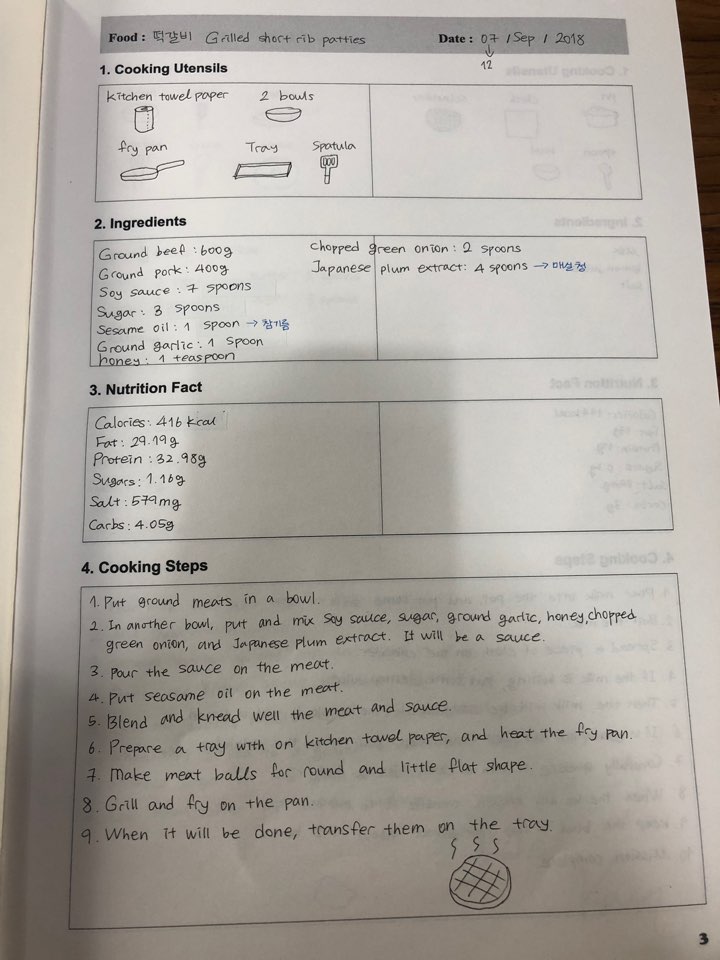 Food : 떡갈비 Grilled short rib patties Date : 07 / Sep / 2018
12
1. Cooking Utensils
kitchen towel paper 2 bowls
fry pan Tray Spatula
2. Ingredients
Ground beef : 600g
Ground pork : 400g
Soy sauce : 7 spoons
Sugar : 3 spoons
Sesame oil : 1 spoon → 참기름
Ground garlic : 1 spoon
honey : 1 teaspoon
Chopped green onion : 2 spoons
Japanese plum extract : 4 spoons → 매실청
3. Nutrition Fact
Calories : 416 kcal
Fat : 29.19g
Protein : 32.98g
Sugars : 1.16g
Salt : 579mg
Carbs : 4.05g
4. Cooking Steps
1. Put ground meats in a bowl.
2. In another bowl, put and mix soy sauce, sugar, ground garlic, honey, chopped
green onion, and Japanese plum extract. It will be a sauce.
3. Pour the sauce on the meat.
4. Put seasame oil on the meat.
5. Blend and knead well the meat and sauce.
6. Prepare a tray with on kitchen towel paper, and heat the fry pan.
7. Make meat balls for round and little flat shape.
8. Grill and fry on the pan.
9. When it will be done, transfer them on the tray.
3